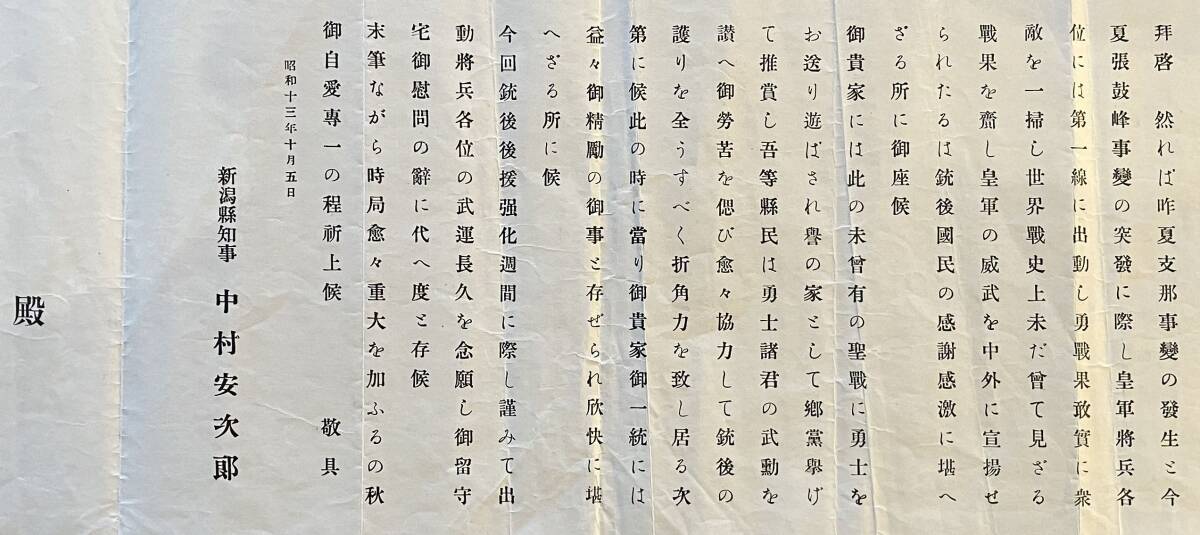 拜啓　然れば昨夏支那事變の發生と今
夏張鼓峰事變の突發に際し皇軍將兵各
位には第一線に出動し勇戰果敢實に衆
敵を一掃し世界戰史上未だ曾て見ざる
戰果を齎し皇軍の威武を中外に宣揚せ
られたるは銃後國民の感謝感激に堪へ
ざる所に御座候
御貴家には此の未曾有の聖戰に勇士を
お送り遊ばされ譽の家として鄕黨擧げ
て推賞し吾等縣民は勇士諸君の武勳を
讃へ御勞苦を偲び愈々協力して銃後の
護りを全うすべく折角力を致し居る次
第に候此の時に當り御貴家御一統には
益々御精勵の御事と存ぜられ欣快に堪
へざる所に候
今回銃後後援强化週間に際し謹みて出
動將兵各位の武運長久を念願し御留守
宅御慰問の辭に代へ度と存候
末筆ながら時局愈々重大を加ふるの秋
御自愛專一の程祈上候　敬具
昭和十三年十月五日
新潟縣知事　中村安次郞
殿